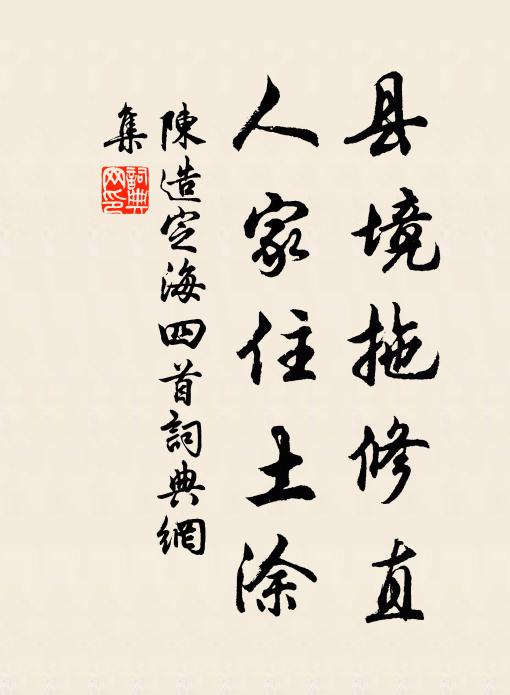 县境拖修直
人家住土涂
陳造定海四首詞典網
集
詞典網印